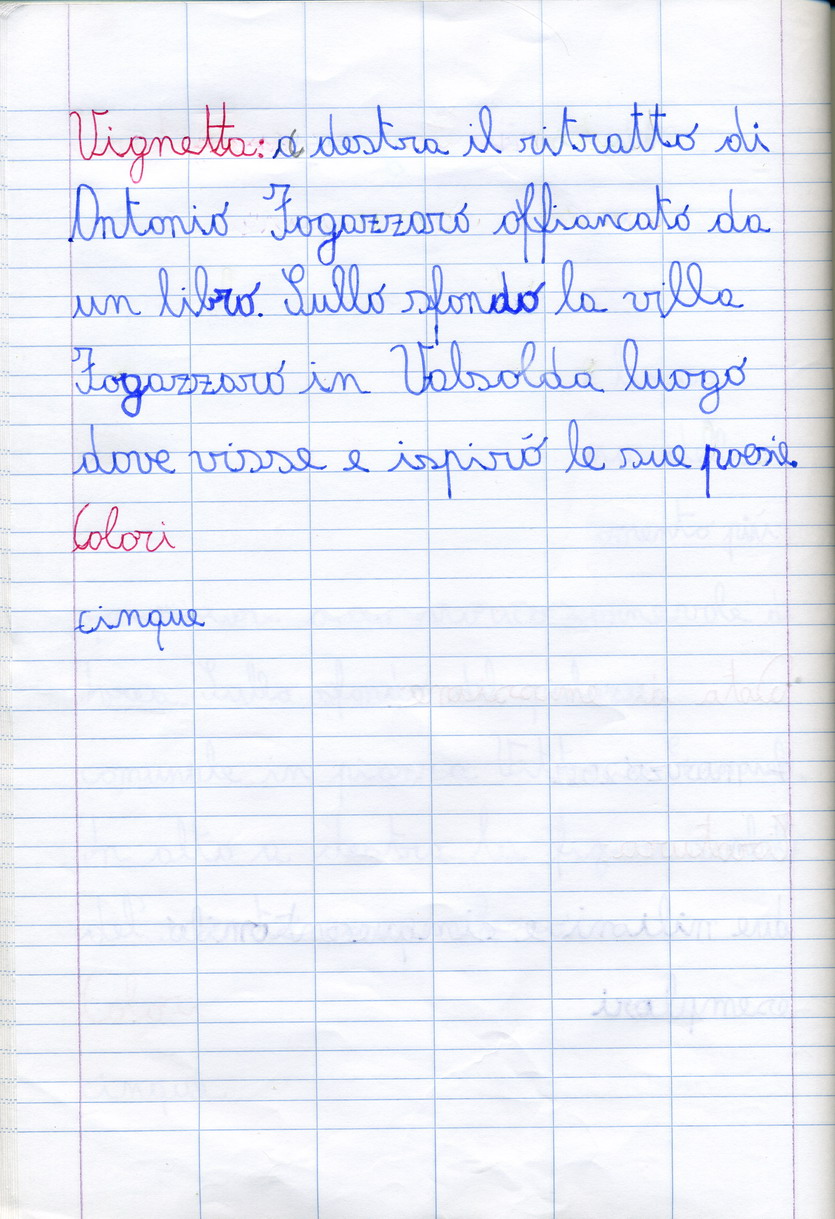 Vignetta: a destra il ritratto di
Antonio Fogazzaro affiancato da
un libro. Sullo sfondo la villa
Fogazzaro in Valsolda luogo
dove visse e ispirò le sue poesie.
Colori
cinque